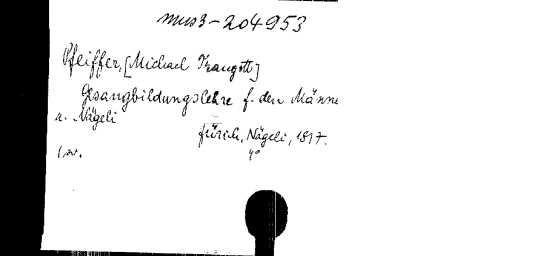 mus3-204953
Pfeiffer, [Michael Traugott]
Gesangbildungslehre f. den Männe
u. Nägeli
Zürich, Nägeli, 1817.
4°